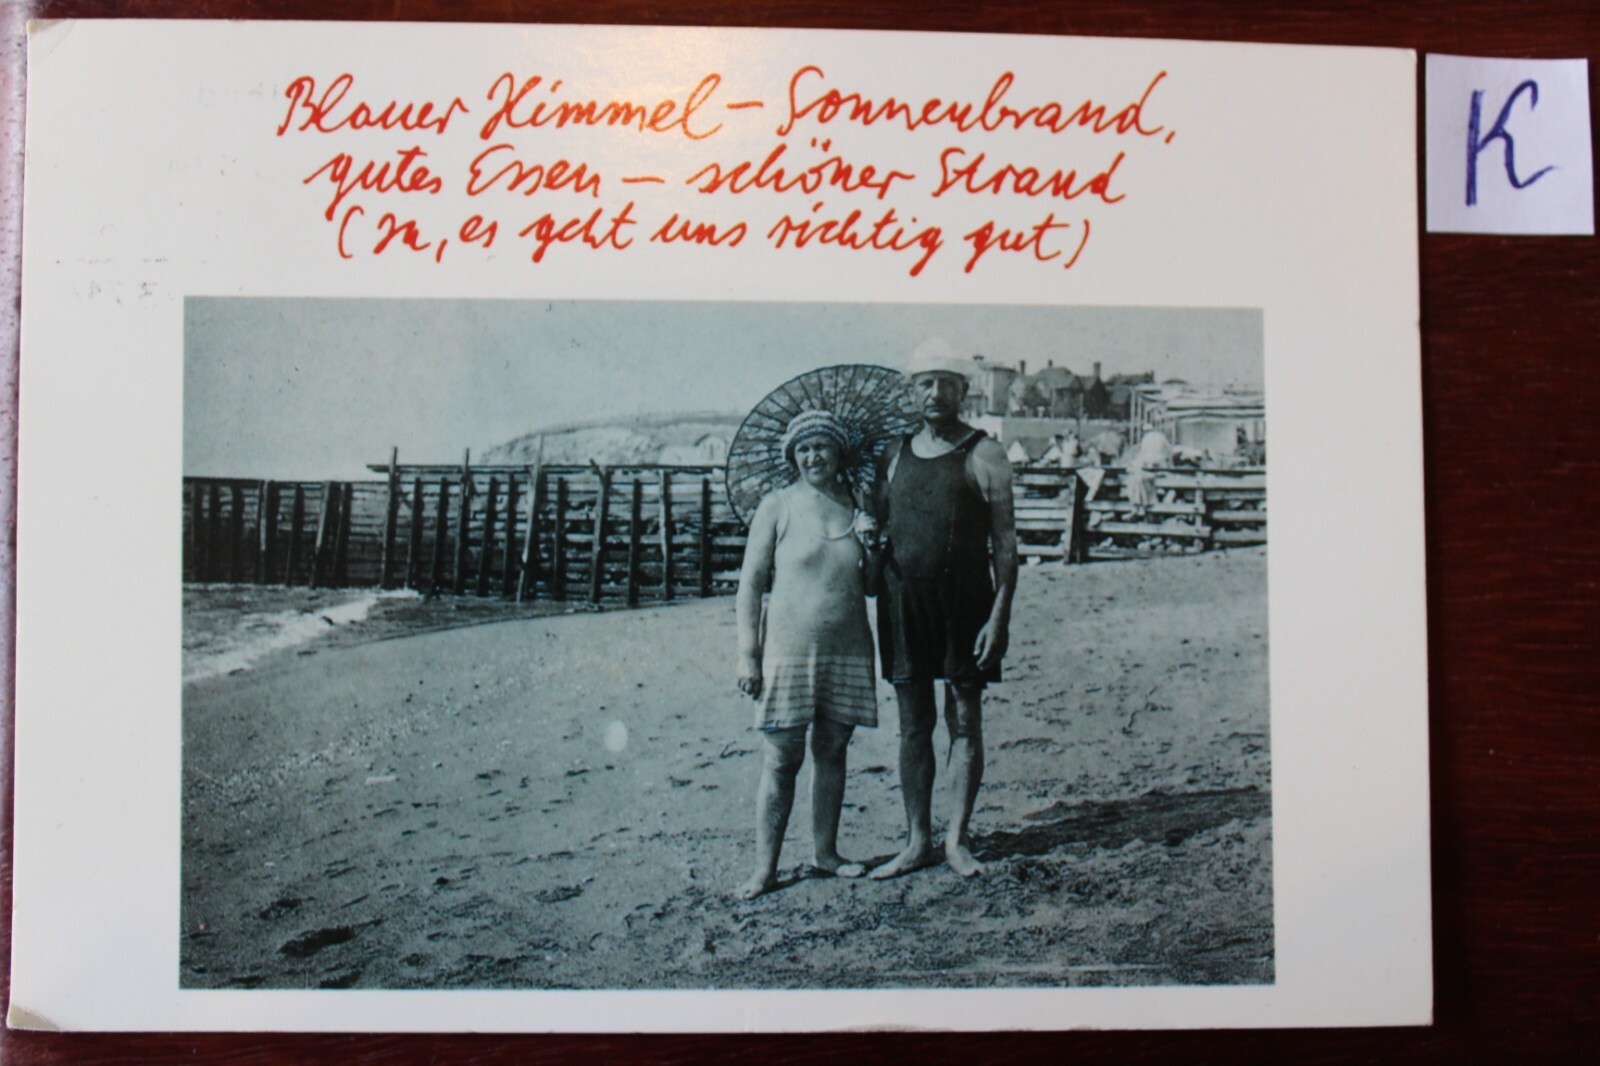 Blauer Himmel – Sonnenbrand,
gutes Essen – schöner Strand
(Ja, es geht uns richtig gut)
K